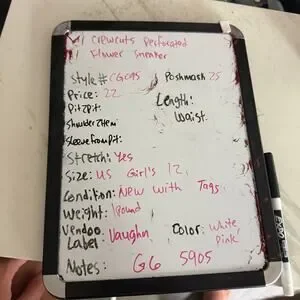 Crewcuts Perforated
Flower Sneaker
Style# CG095 Poshmark 25
Price: 22 Length:
Pit2pit: Waist.
Shoulder2Hem:
Sleevefrompit:
Stretch: Yes
Size: US Girl's 12
Condition: New with Tags
Weight: 1 Pound
Vendoo Label Vaughn Color: White, Pink
Notes: G6 5905
EXPO